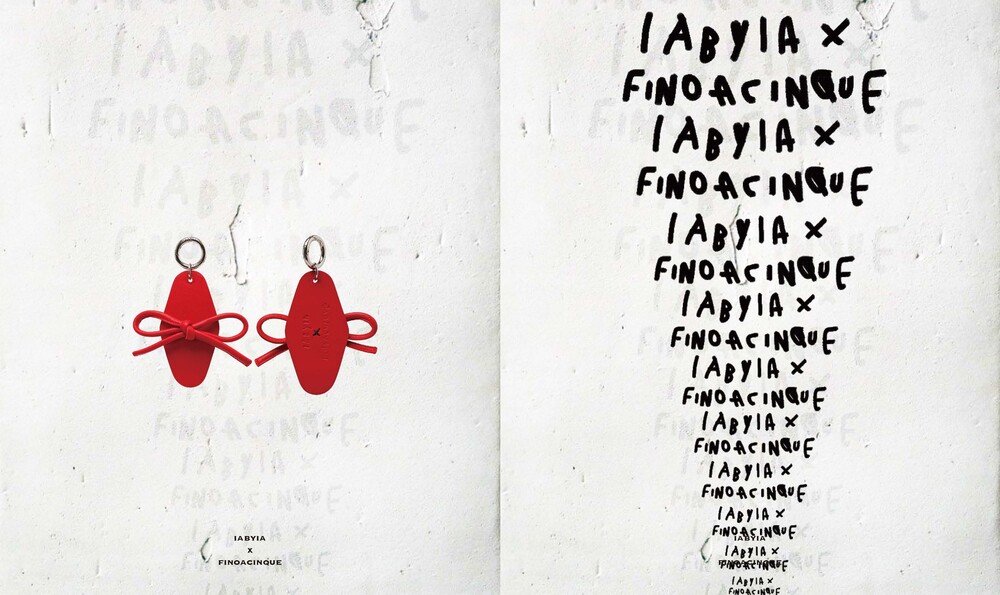 IABYIA X
FINOACINQUE
IABYIA X
FINOACINQUE
FINOACINQUE
IABYIA X
FINOACINQUE
IABYIA X
IABYIA
X
FINOACINQUE
IABYIA X
FINOACINQUE
IABYIA X
FINOACINQUE
IABYIA X
FINOACINQUE
IABYIA X
FINOACINQUE
IABYIA X
FINOACINQUE
IABYIA X
FINOACINQUE
IABYIA X
FINOACINQUE
IABYIA X
FINOACINQUE
IABYIA
IABYIA X
FINOACINQUE
IABYIA X
FINOACINQUE